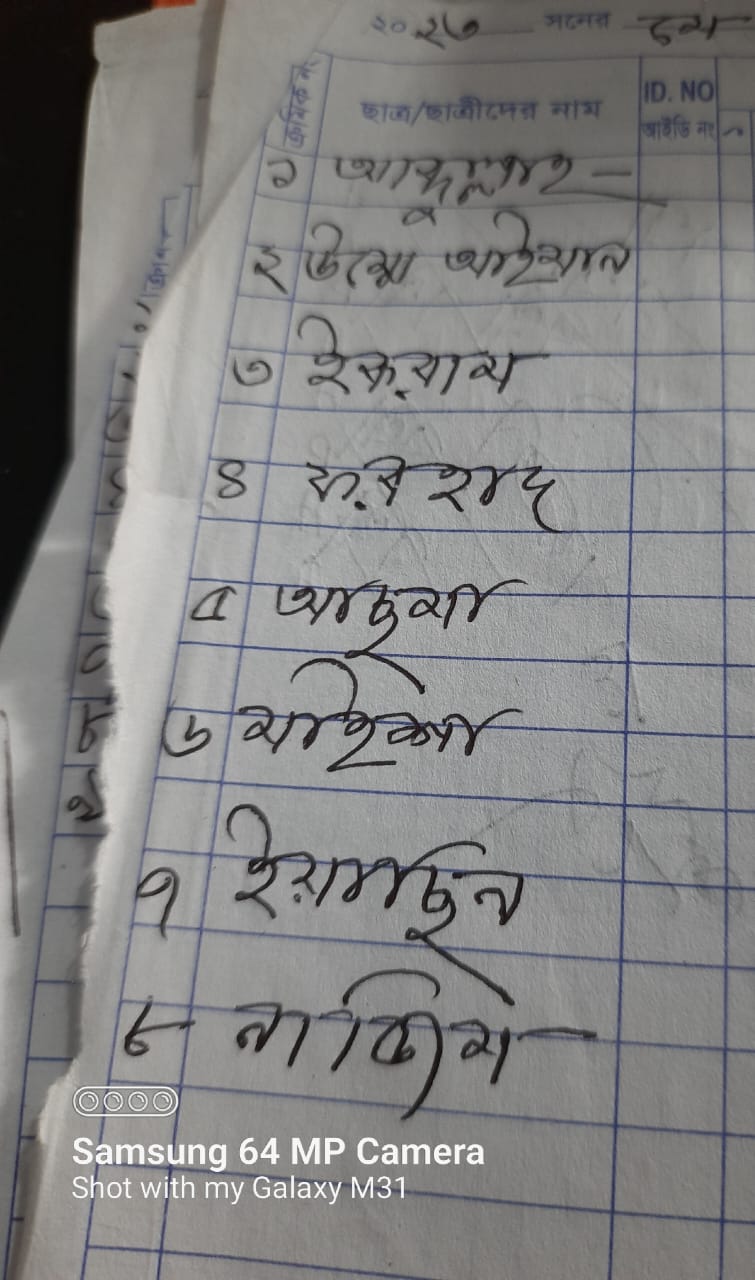 ২০২৬ সনের
ক্রমিক নং ছাত্র/ছাত্রীদের নাম ID. NO
আইডি নং
১ আব্দুল্লাহ
২ উম্মে আইমান
৩ ইকরাম
৪ ফরহাদ
৫ আছমা
৬ মাইশা
৭ ইয়াছিন
৮ নাজিম
Samsung 64 MP Camera
Shot with my Galaxy M31